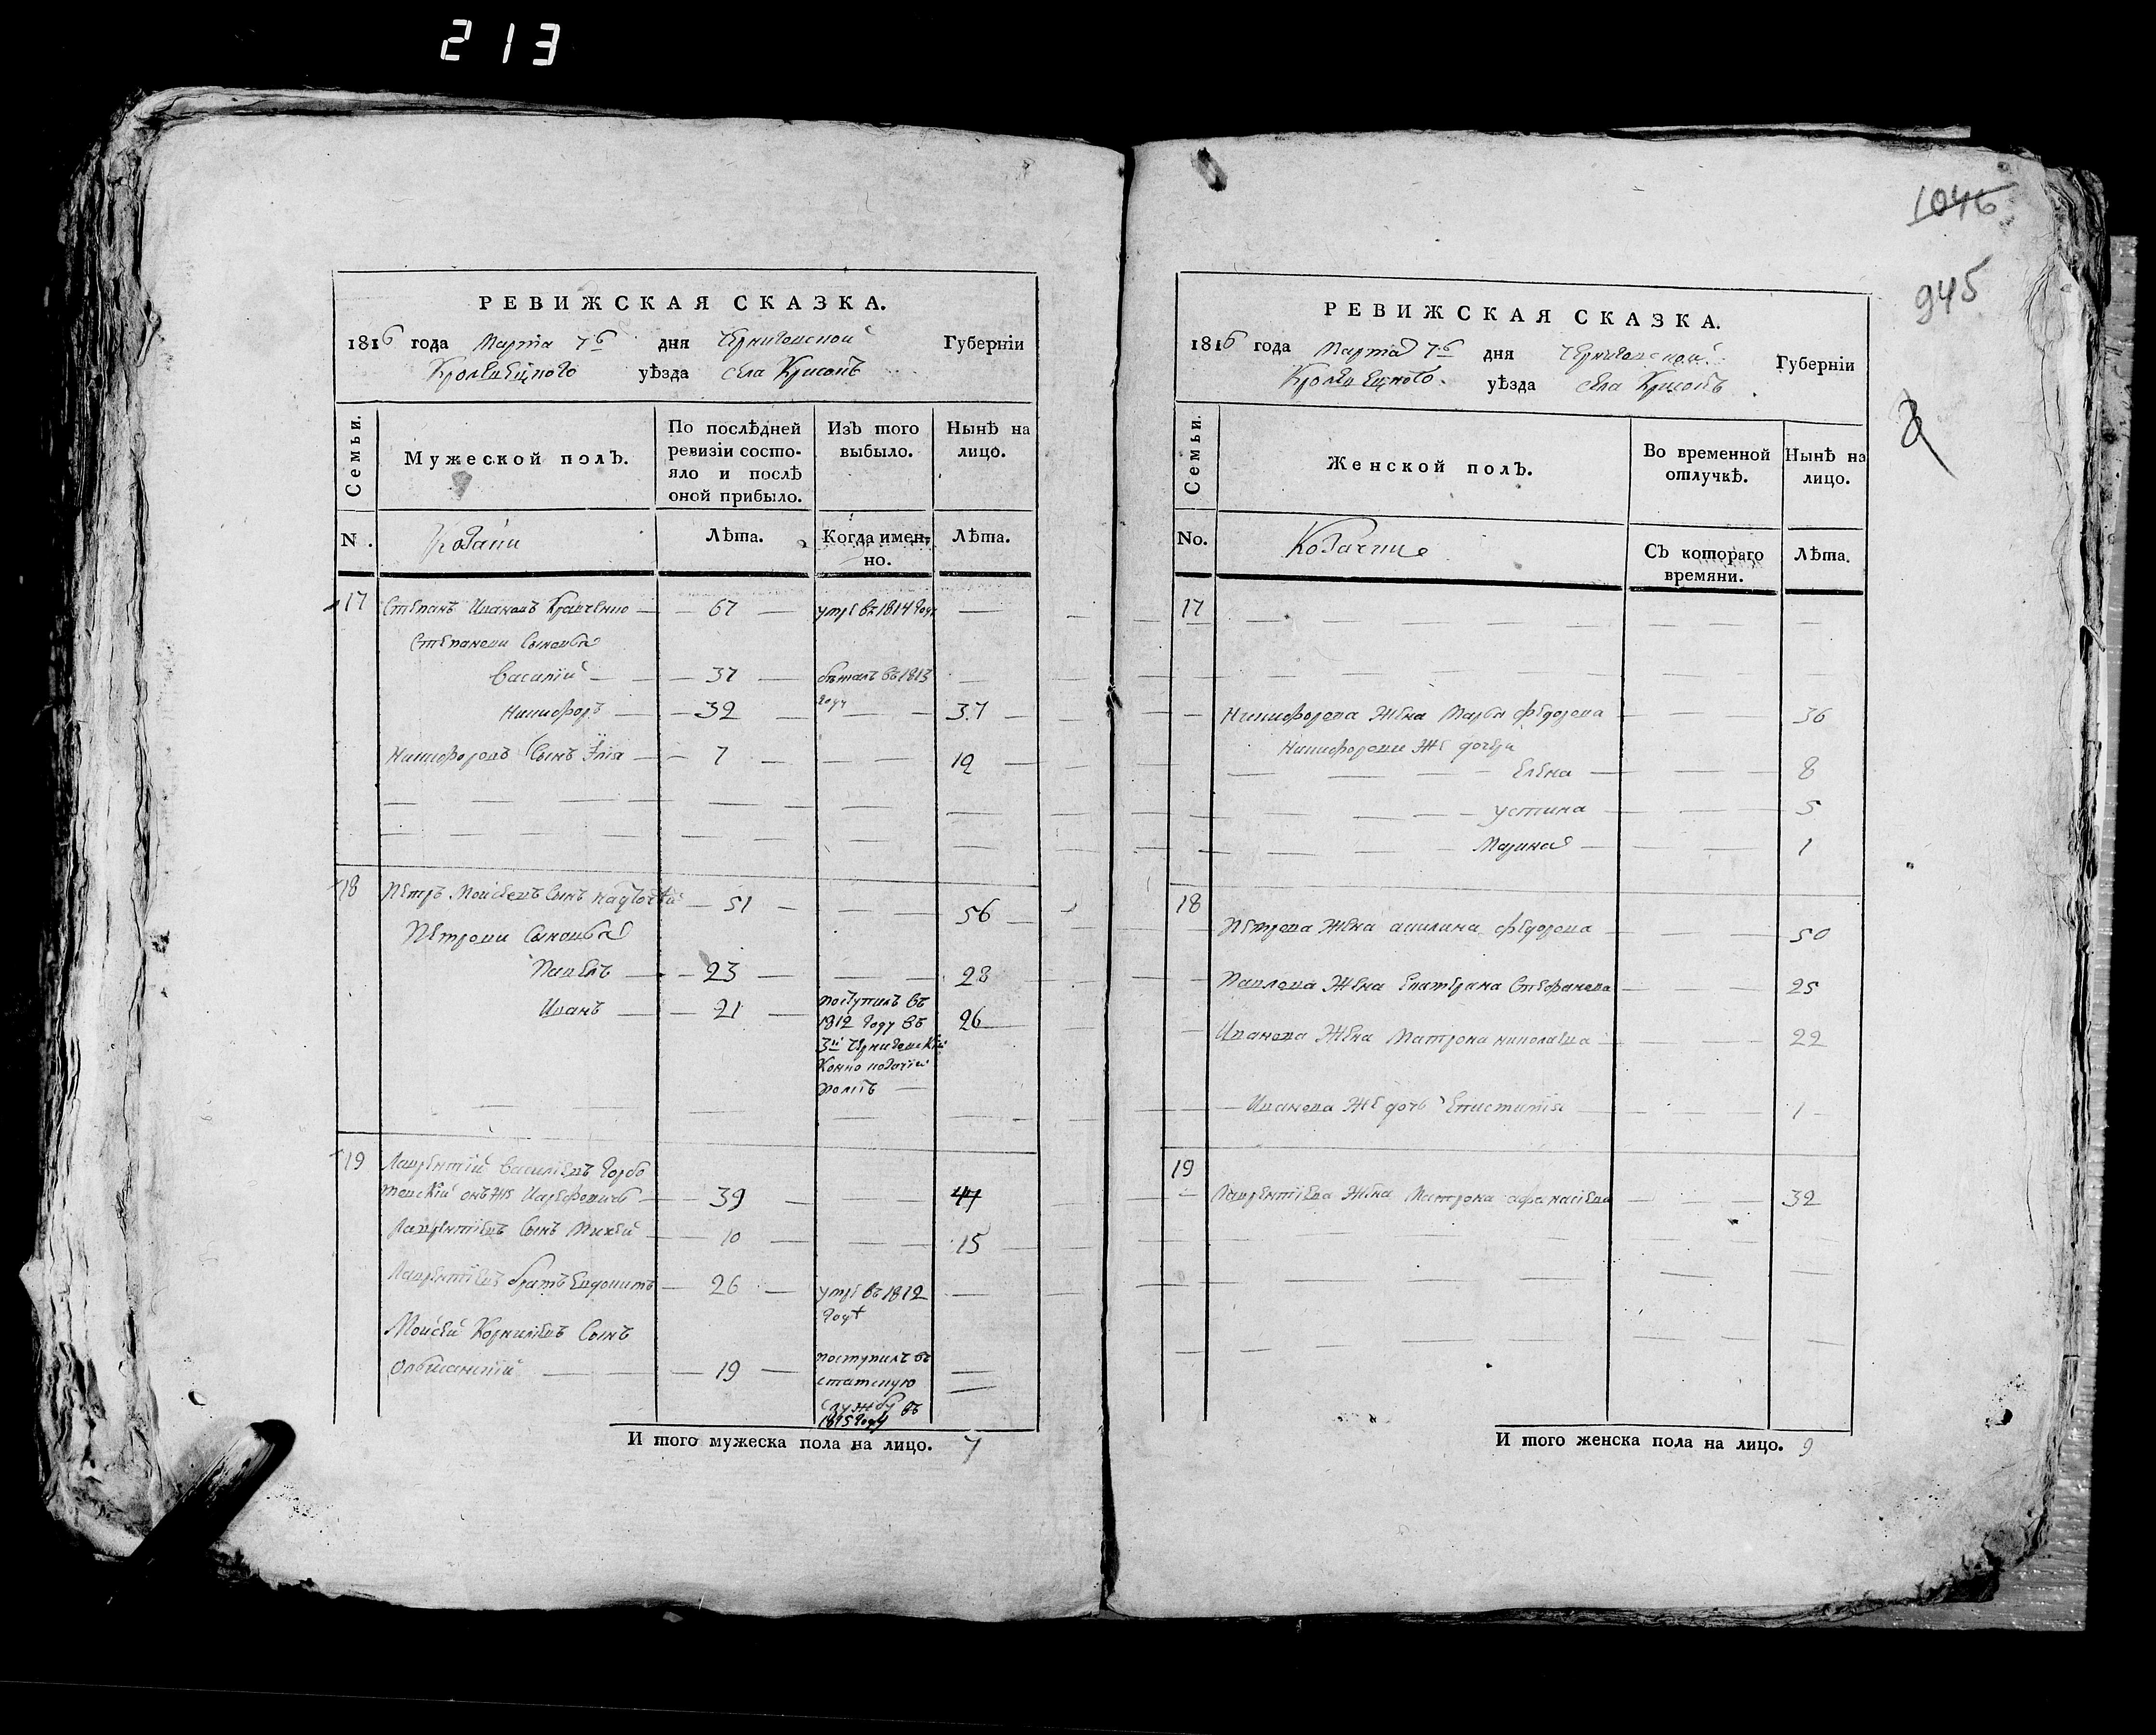 213
1046
945
РЕВИЖСКАЯ СКАЗКА.
1816 года Марта 7го дня Черниговской Губерніи
Кролевецкого уѣзда села
Семьи.
Мужеской полъ.
По послѣдней
ревизіи состо-
яло и послѣ
оной прибыло.
Изъ того
выбыло.
Нынѣ на
лицо.
N. Козаки
Лѣта.
Когда имен-
но.
Лѣта.
17 Степанъ Ивановъ Кравченко 67 умре въ 1814 году
Степанови Сыновья
Василій 37 въ 1813
году
Никифоръ 32 37
Никифоровъ Сынъ Илія 7 12
18 Петръ Моисеевъ Сынъ 51 56
Петрови Сыновья
Павелъ 23 28
Иванъ 21 поступилъ въ 26
1812 году въ
3й Черниговскій
Конно козачій
полкъ
19 Лаврентій Василіевъ
онъ же 39 44
Лаврентіевъ Сынъ Михей 10 15
Лаврентіевъ братъ Евдокимъ 26 умре въ 1812
году
Моисей Корниліевъ Сынъ
19 поступилъ въ
статскую
службу въ
1815 году
И того мужеска пола на лицо. 7
РЕВИЖСКАЯ СКАЗКА.
1816 года Марта 7го дня Черниговской Губерніи
Кролевецкого уѣзда села
Семьи.
Женской полъ.
Во временной
отлучкѣ.
Нынѣ на
лицо.
No. Козачки
Съ котораго
времяни.
Лѣта.
17
Никифорова Жена Марфа Федорова 36
Никифорови же дочери
Елена 8
Устина 5
Марина 1
18
Петрова Жена Акилина Федорова 50
Павлова Жена Екатерина Стефанова 25
Иванова Жена Матрона Николаева 22
Иванова же дочь 1
19
Лаврентіева Жена Матрона Афанасіева 32
И того женска пола на лицо. 9